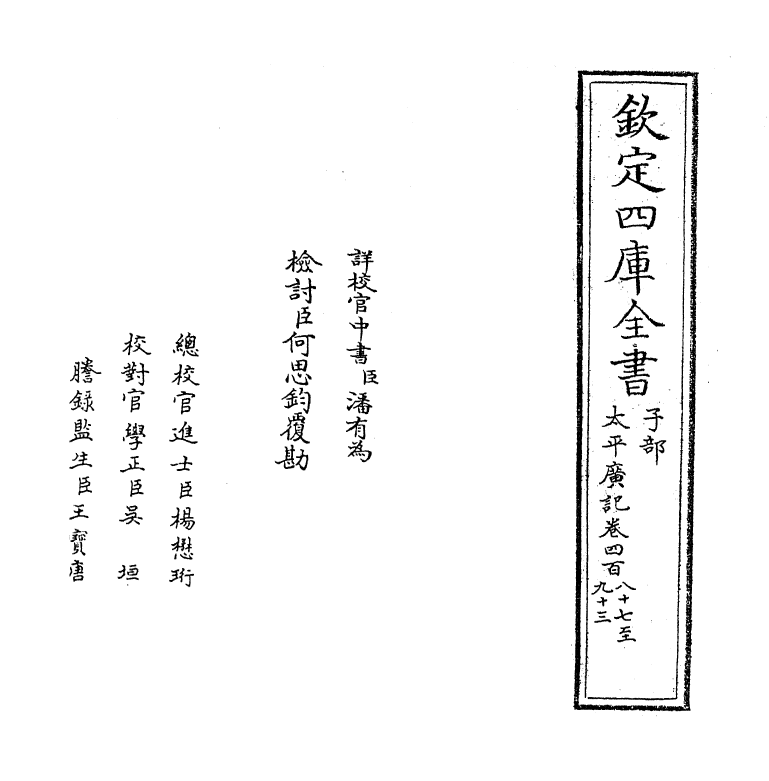 欽定四庫全書
子部
太平廣記卷四百八十七至
九十三
詳校官中書臣潘有為
檢討臣何思鈞覆勘
總校官進士臣楊懋珩
校對官學正臣吳垣
謄錄監生臣王寶唐